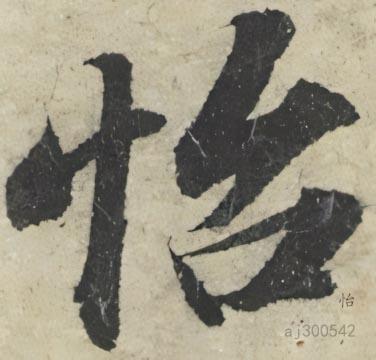 怡
怡
aj300542